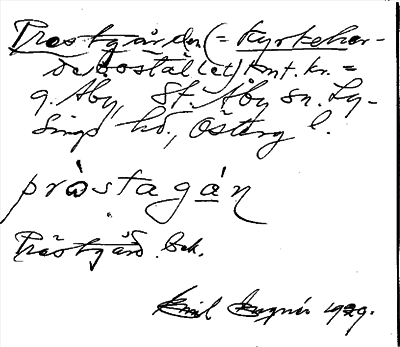 Prestgården (= kyrkeher-
debostäl(et) kmt. kr. =
g. Åby, St. Åby sn. Ly-
sings hd., Österg l.
pròstagán
Prästgård. Bek.
Emil 1929.